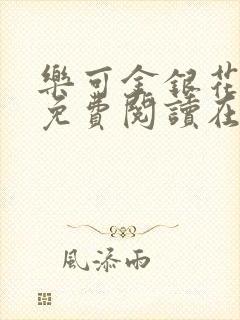 樂可金銀花
免費閱讀在
風添雨